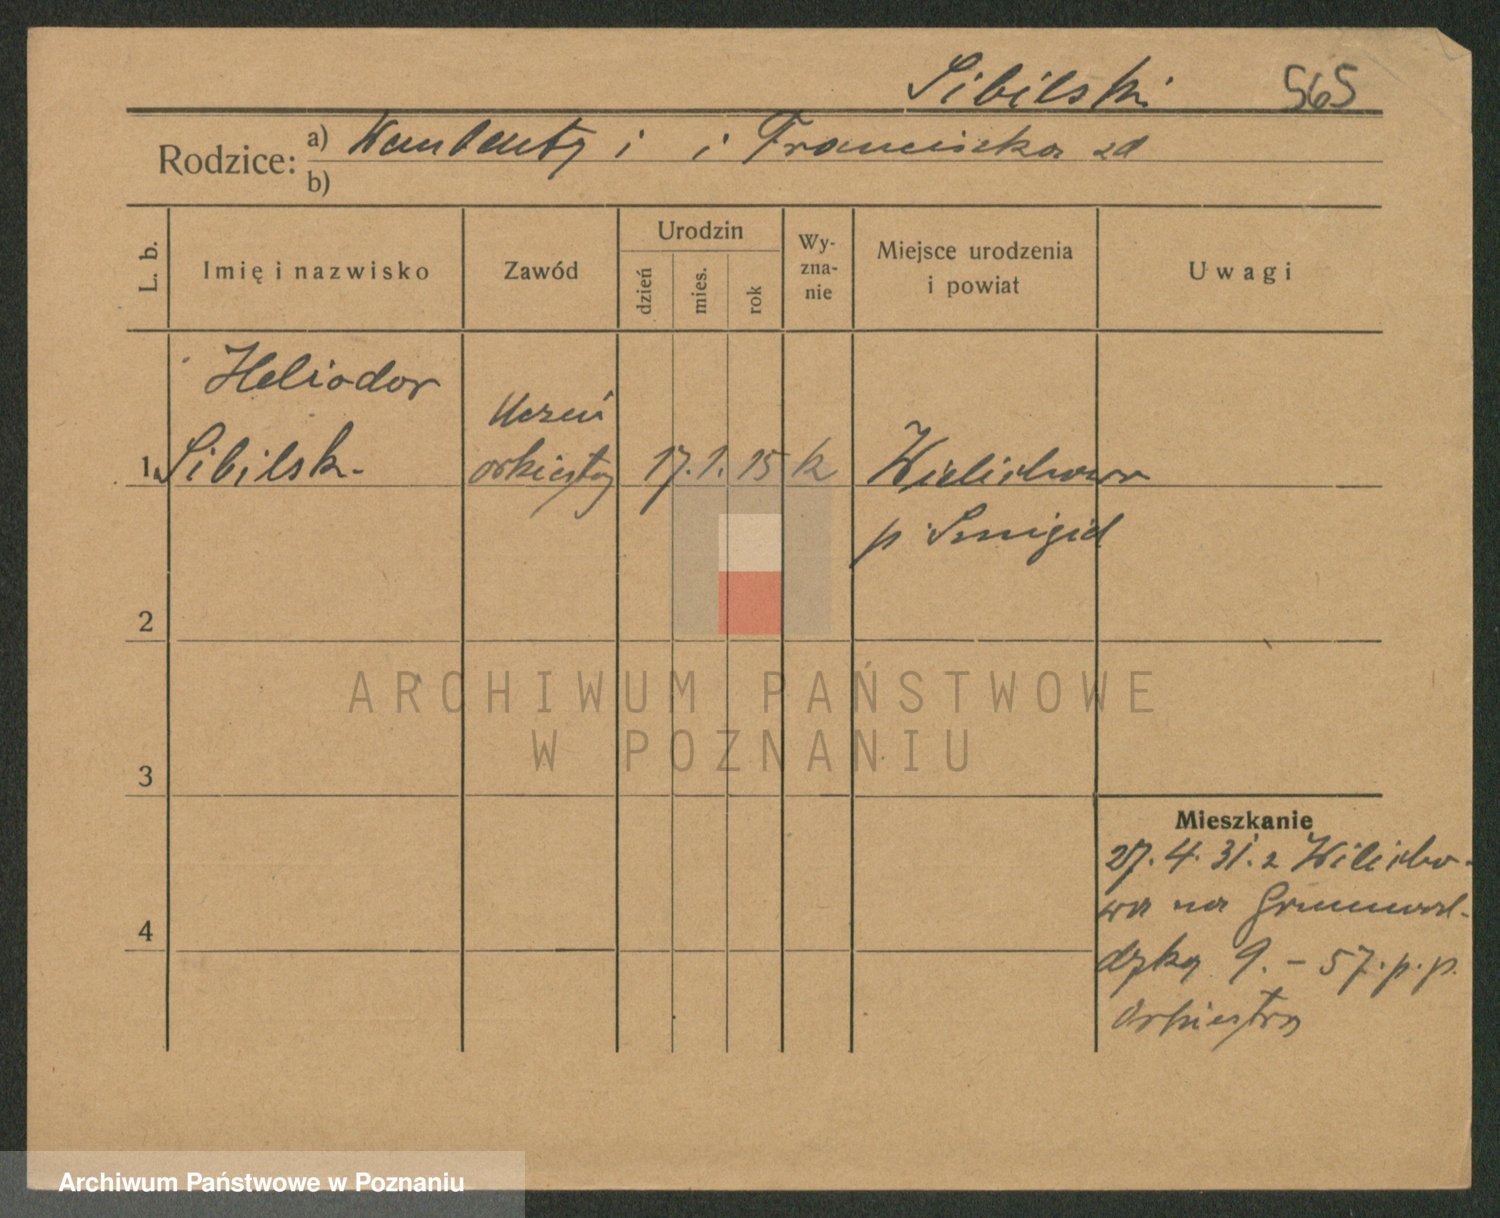 Sibilski 565
Rodzice: a) i i Franciszka zd
b)
L. b. Imię i nazwisko Zawód Urodzin dzień mies. rok Wy-zna-nie Miejsce urodzenia i powiat Uwagi
Heliodor
Uczeń
1 Sibilsk. orkiestry 17. 1. 15 k Wielichowo
p Śmigiel
2
ARCHIWUM PAŃSTWOWE
W POZNANIU
3
Mieszkanie
27. 4. 31. z Wilicho-
4 wa na Grunwal-
dzką 9. – 57. p. p.
Orkiestra
Archiwum Państwowe w Poznaniu